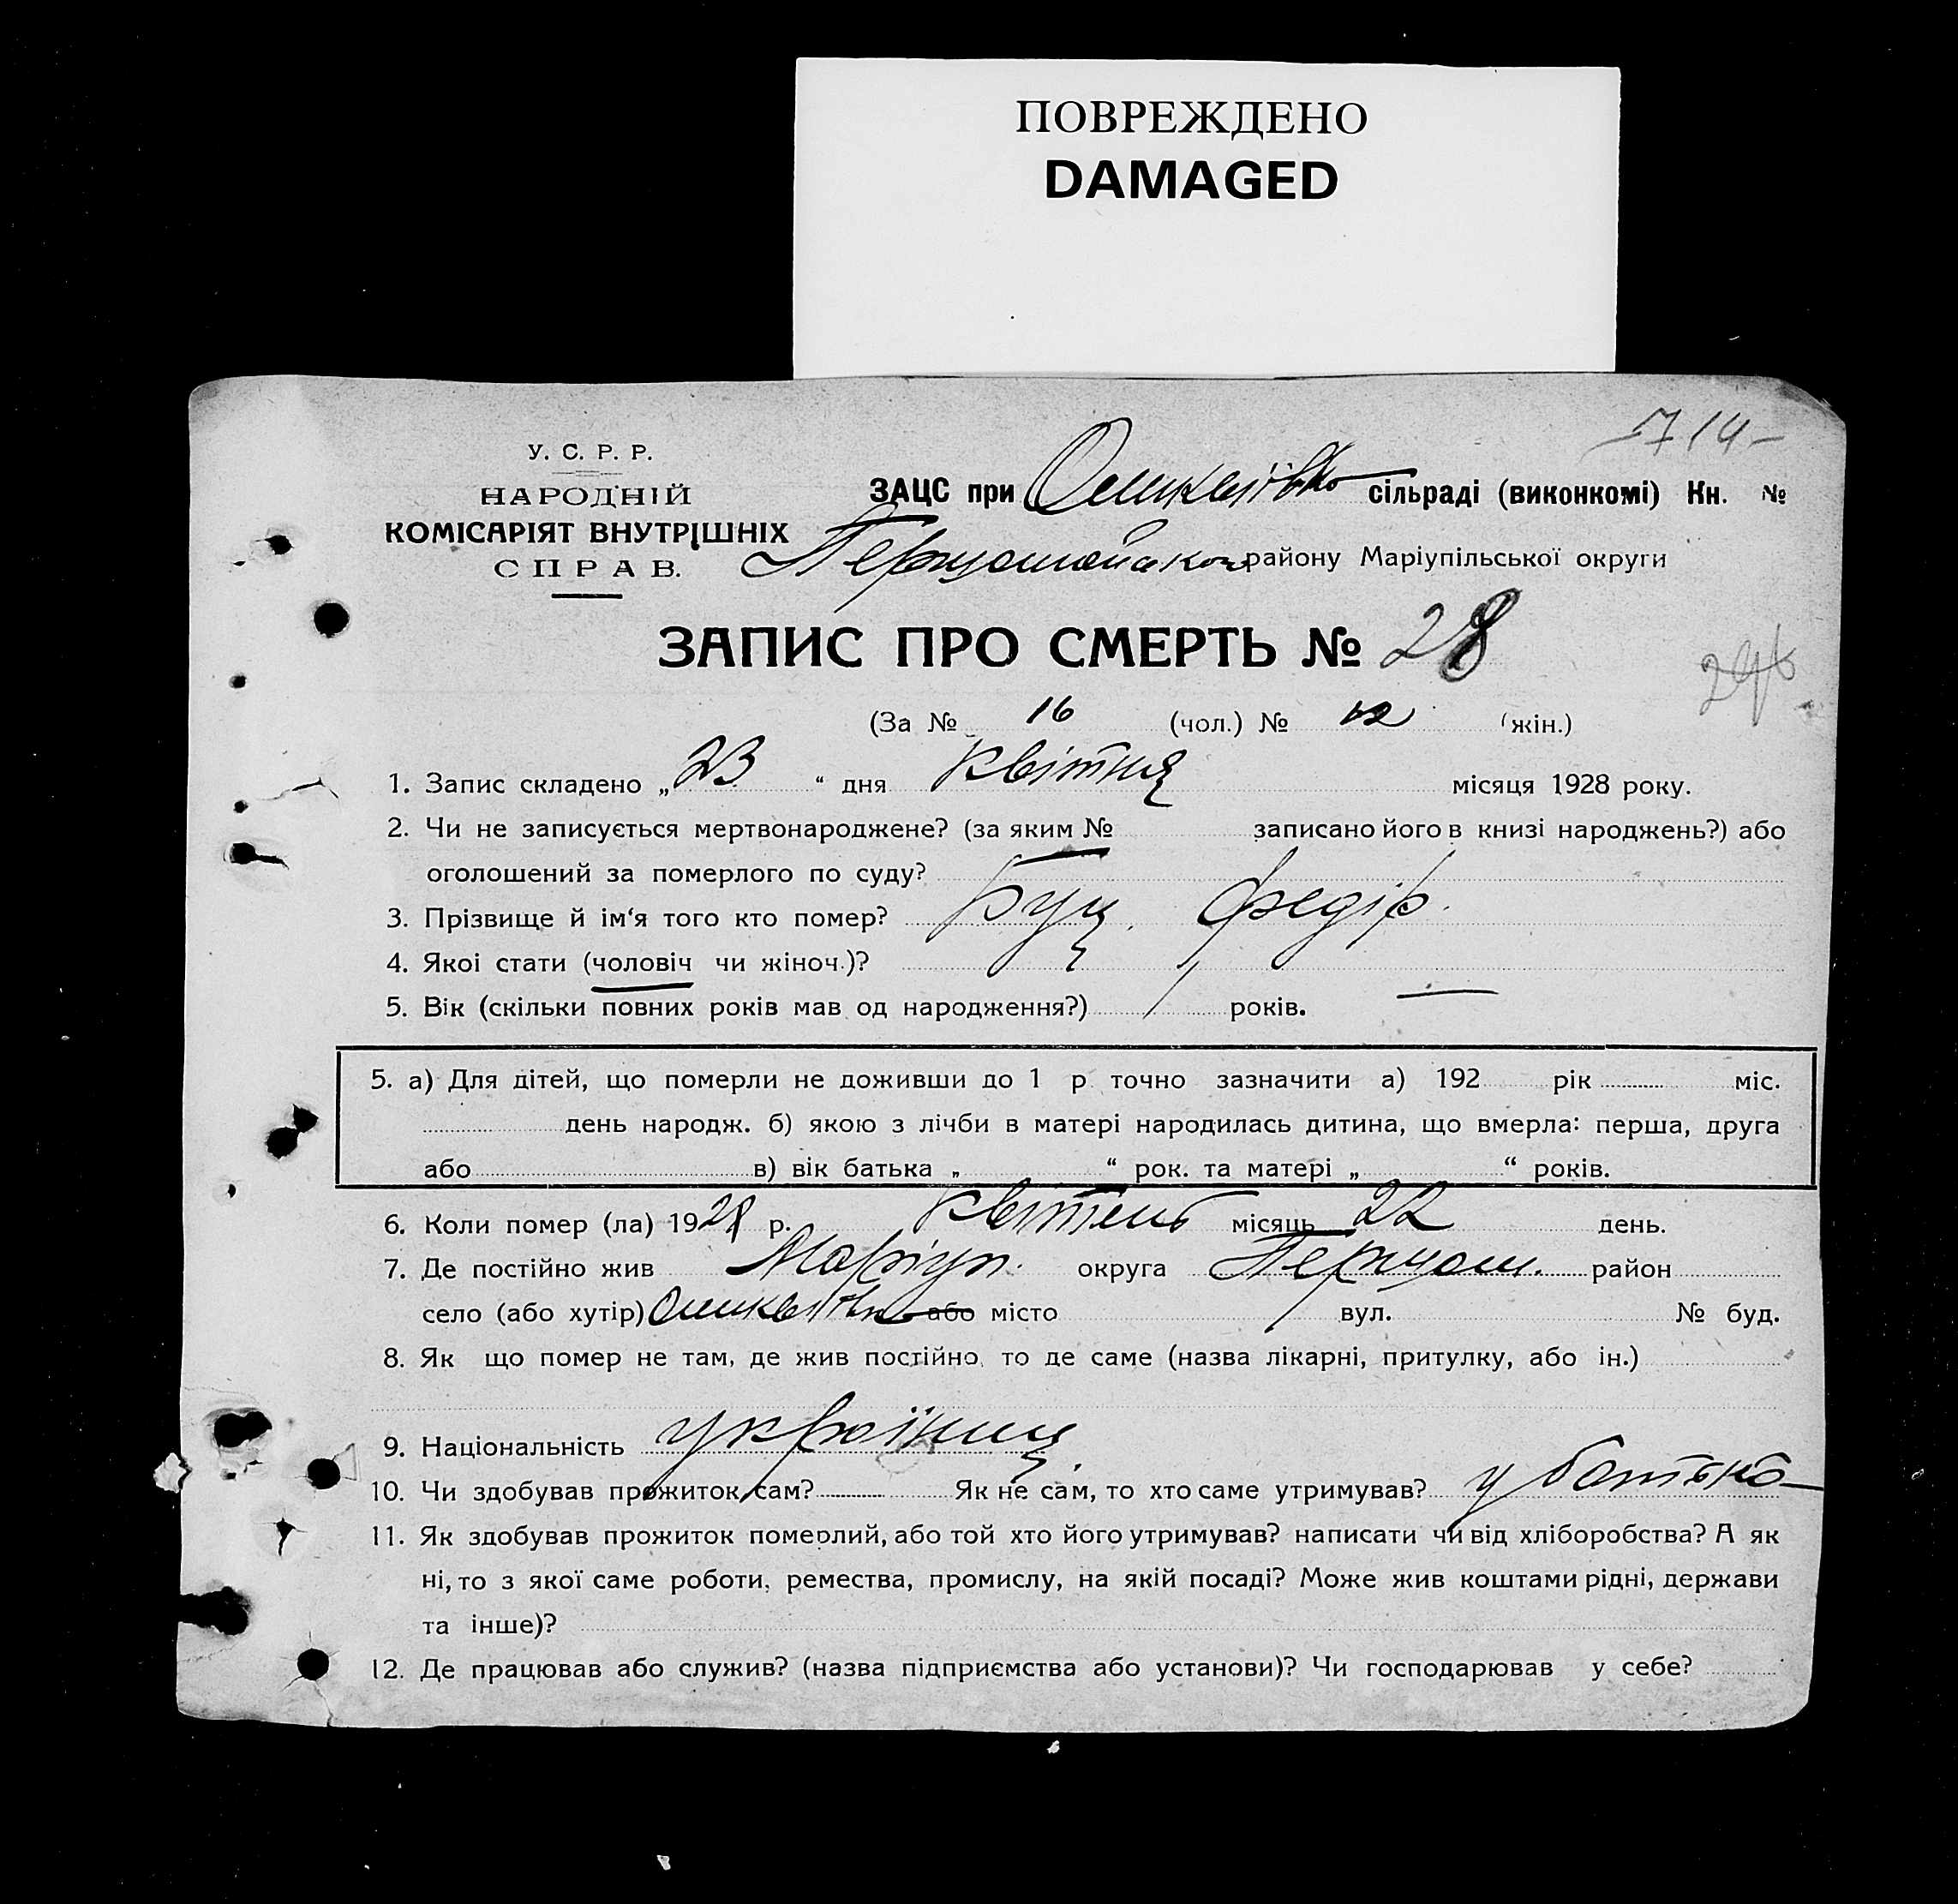 ПОВРЕЖДЕНО
DAMAGED
У. С. Р. Р.
НАРОДНІЙ
КОМІСАРІЯТ ВНУТРІШНІХ
СПРАВ.
ЗАЦС при сільраді (виконкомі) Кн. №
району Маріупільської округи
ЗАПИС ПРО СМЕРТЬ № 28
(За № 16 (чол.) № 12 (жін.)
1. Запис складено „ 23 “ дня квітня місяця 1928 року.
2. Чи не записується мертвонароджене? (за яким № записано його в книзі народжень?) або
оголошений за померлого по суду?
3. Прізвище й ім‘я того кто помер? Буц Федір.
4. Якоі стати (чоловіч чи жіноч.)?
5. Вік (скільки повних років мав од народження?) 1 років. —
5. а) Для дітей, що померли не доживши до 1 р. точно зазначити а) 192 рік міс.
день народж. б) якою з лічби в матері народилась дитина, що вмерла: перша, друга
або в) вік батька „ “ рок. та матері „ “ років.
6. Коли помер (ла) 1928 р. квітень місяць 22 день.
7. Де постійно жив Маріуп. округа Першом. район
село (або хутір) або місто вул. № буд.
8. Як що помер не там, де жив постійно, то де саме (назва лікарні, притулку, або ін.)
9. Національність українець
10. Чи здобував прожиток сам? Як не сам, то хто саме утримував? у батька
11. Як здобував прожиток померлий, або той хто його утримував? написати чи від хліборобства? А як
ні, то з якої саме роботи, ремества, промислу, на якій посаді? Може жив коштами рідні, держави
та інше)?
12. Де працював або служив? (назва підприємства або установи)? Чи господарював у себе?